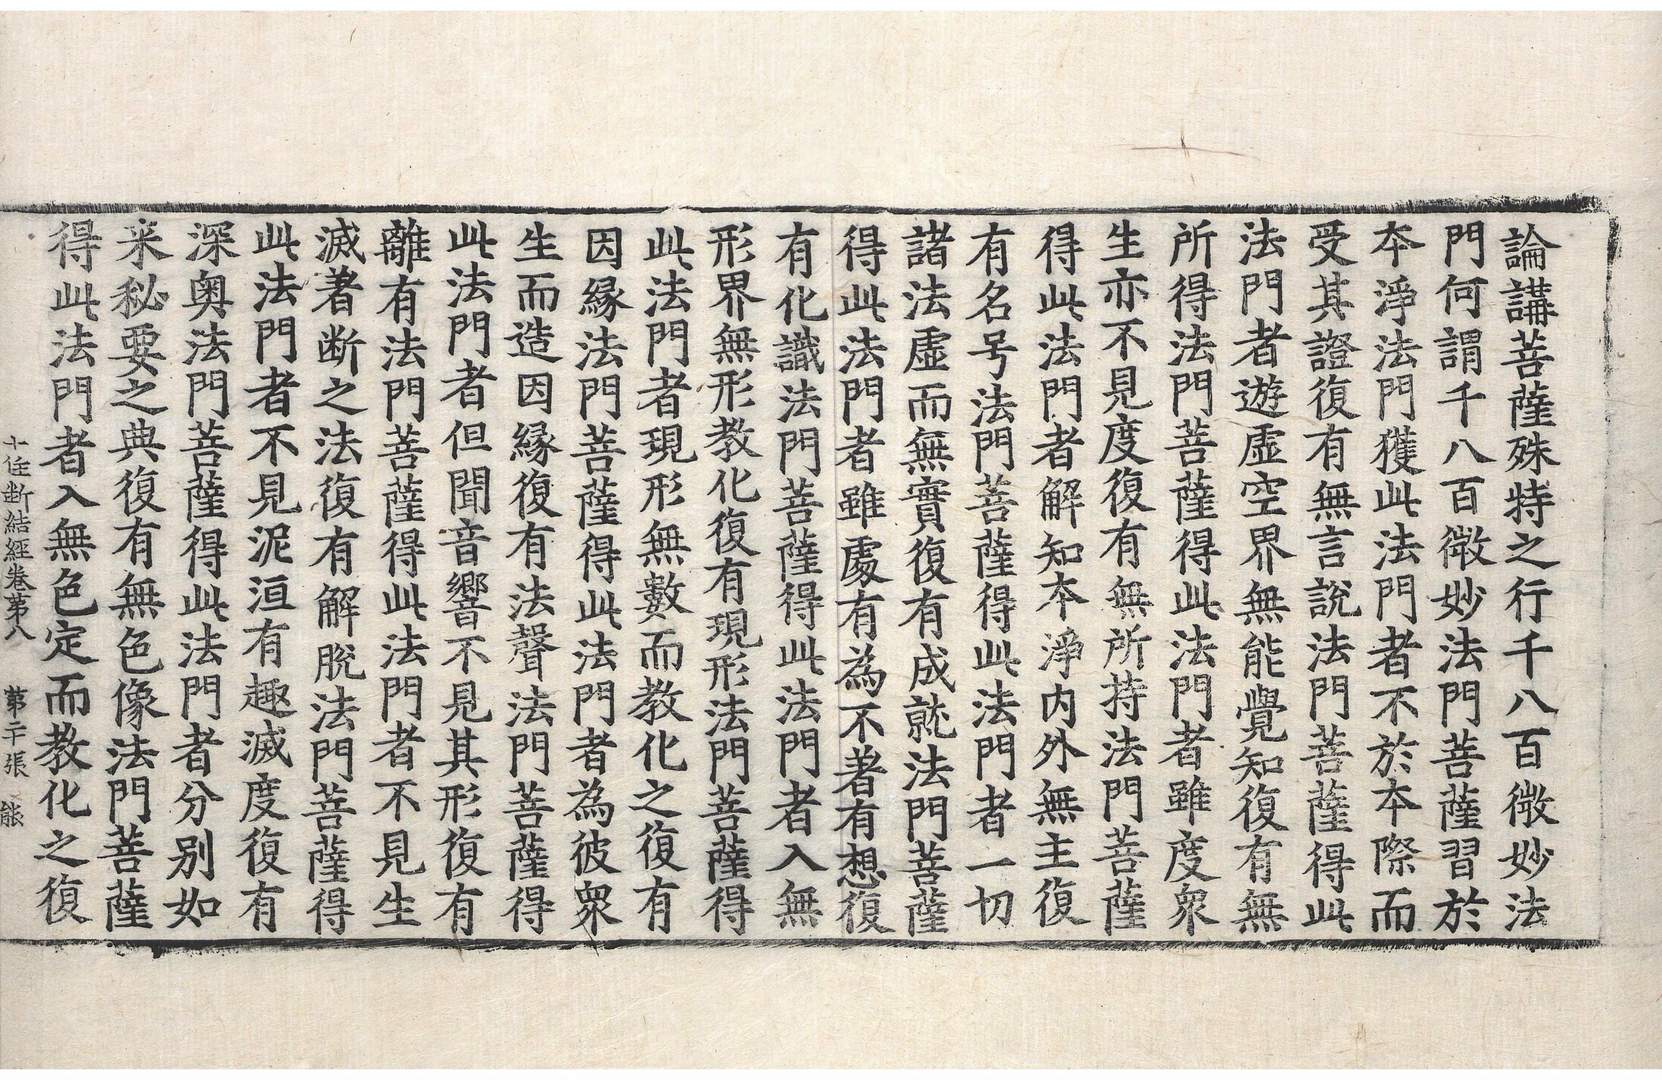 論講菩薩殊特之行千八百微妙法
門何謂千八百微妙法門菩薩習於
本淨法門獲此法門者不於本際而
受其證復有無言說法門菩薩得此
法門者遊虛空界無能覺知復有無
所得法門菩薩得此法門者雖度衆
生亦不見度復有無所持法門菩薩
得此法門者解知本淨內外無主復
有名号法門菩薩得此法門者一切
諸法虛而無實復有成就法門菩薩
得此法門者雖處有為不著有想復
有化識法門菩薩得此法門者入無
形界無形教化復有現形法門菩薩得
此法門者現形無數而教化之復有
因緣法門菩薩得此法門者為彼衆
生而造因緣復有法聲法門菩薩得
此法門者但聞音響不見其形復有
離有法門菩薩得此法門者不見生
滅著断之法復有解脫法門菩薩得
此法門者不見泥洹有趣滅度復有
深奧法門菩薩得此法門者分別如
来秘要之典復有無色像法門菩薩
得此法門者入無色定而教化之復
十住断結經卷第八 第二十張 能